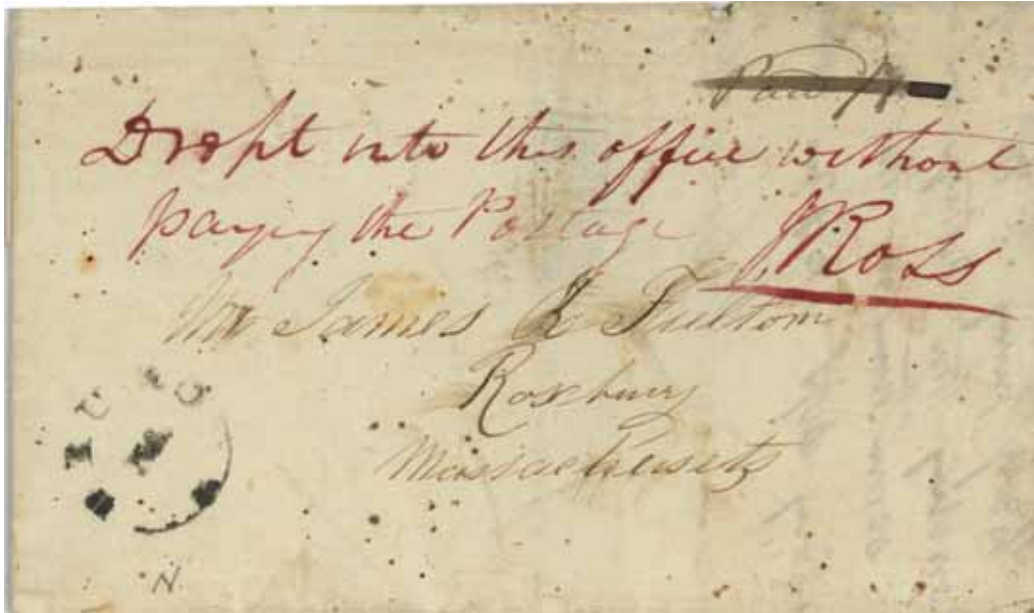 Paid
Dropt into this office without
paying the Postage JRoss
Mr James & Fultom
Roxbury
Massachusets
N